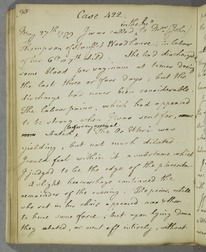 Case 492.
May 27th 1779 I was called, in the
Thompson of Woodhouse, in labour
of her 6th child. She had discharged
some blood per vaginam at times during
the last three or four days, but the
discharge has never been considerable.
The Labour pains, which had appeared
to be strong when I was sent for, were
abated, The Os Uteri was
yielding, but not much dilated.
I could feel within it a substance which
I judged to be the edge of the placenta.
A slight hæmorrhage continued the
remainder of the evening. The pains, while
she sat in her chair, appeared now & then
to have some force, but upon lying down
they abated, or went off entirely, without